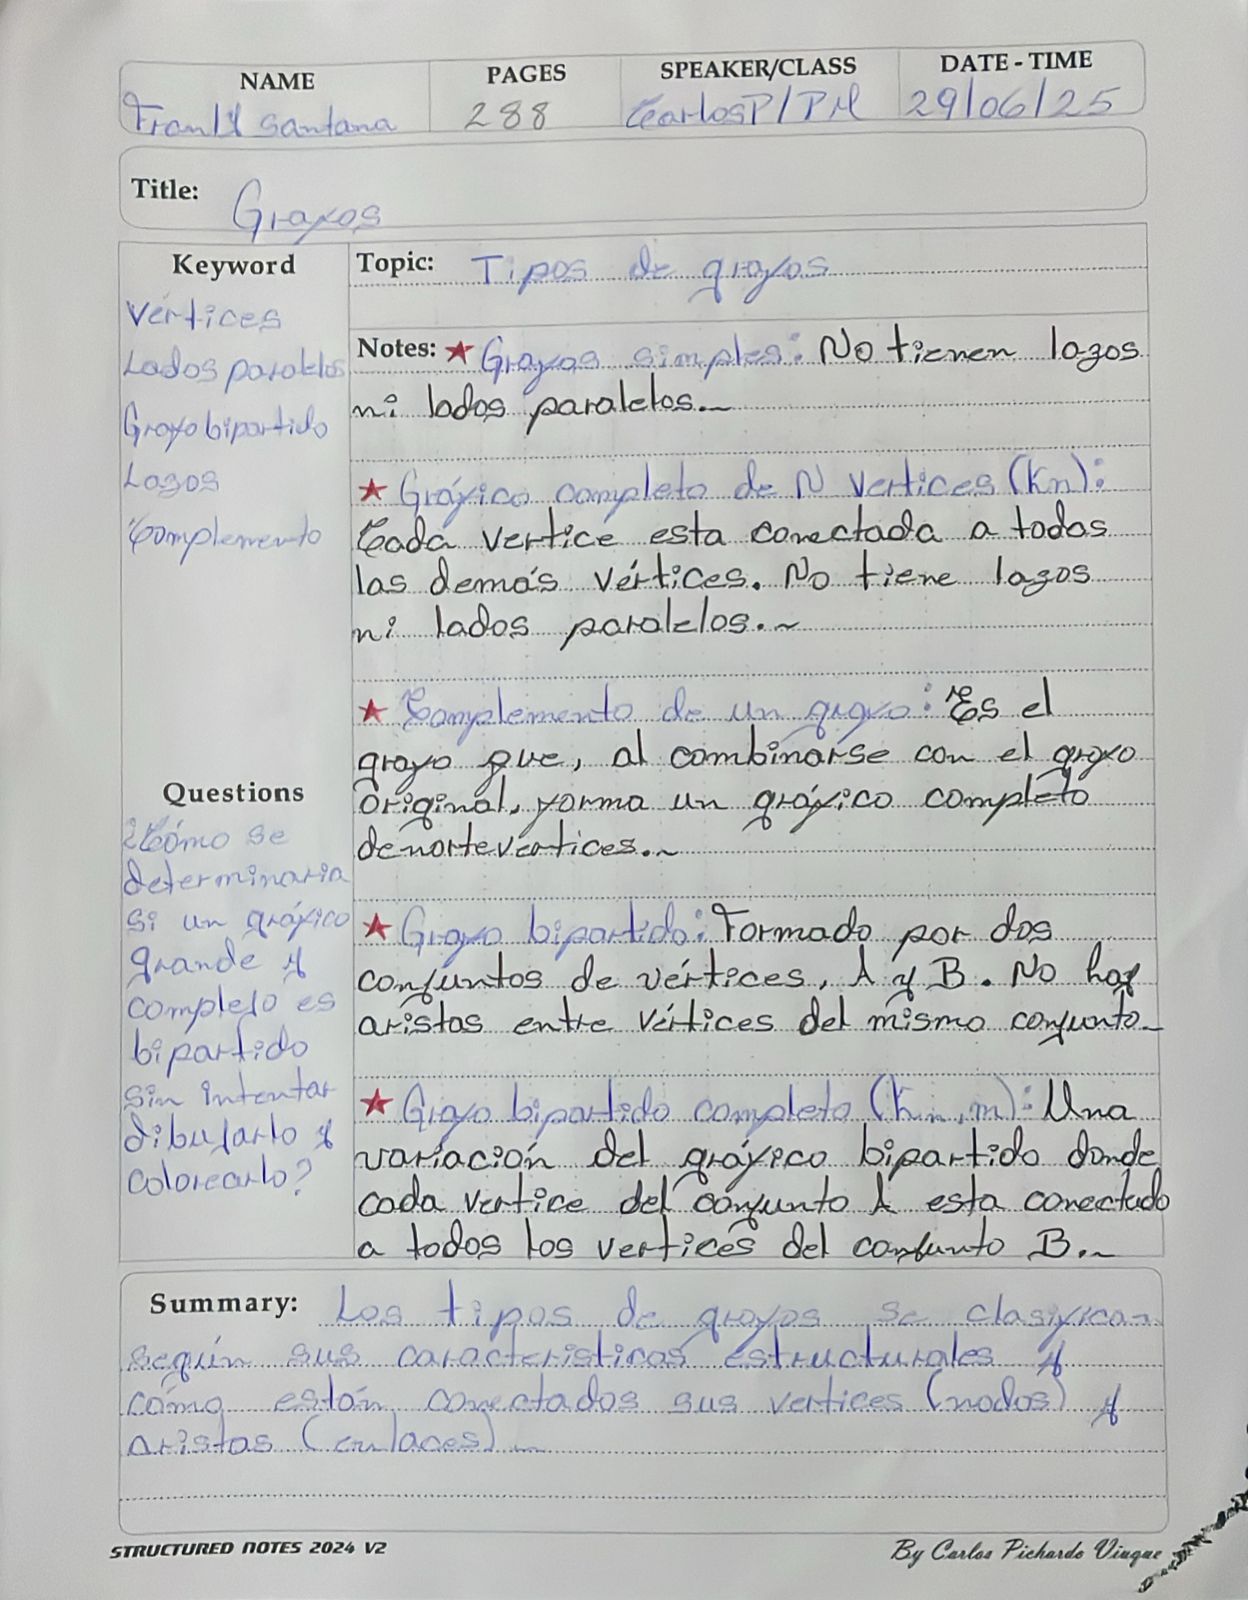 NAME PAGES SPEAKER/CLASS DATE - TIME
Santana 288 CarlosP/PM 29/06/25
Title: Grafos
Keyword
Vértices
Lados paralelos
Grafo bipartido
Lazos
Complemento
Questions
¿Cómo se
determinaria
si un gráfico
grande y
complejo es
bipartido
sin intentar
dibujarlo y
colorearlo?
Topic: Tipos de grafos
Notes: ★ Grafos simples: No tienen lazos
ni lados paralelos.~
★ Gráfico completo de N vertices (Kn):
Cada vertice esta conectada a todos
las demás vértices. No tiene lazos
ni lados paralelos.~
★ Complemento de un grafo: Es el
grafo que, al combinarse con el grafo
original, forma un gráfico completo
de vertices.~
★ Grafo bipartido: Formado por dos
conjuntos de vértices, A y B. No hay
aristas entre vértices del mismo conjunto.
★ Grafo bipartido completo (Kn,m): Una
variación del gráfico bipartido donde
cada vertice del conjunto A esta conectado
a todos los vertices del conjunto B.~
Summary: Los tipos de grafos se clasifican
según sus caracteristicas estructurales y
cómo están conectados sus vertices (nodos) y
aristas (enlaces).~
STRUCTURED NOTES 2024 V2 By Carlos Pichardo Viuque